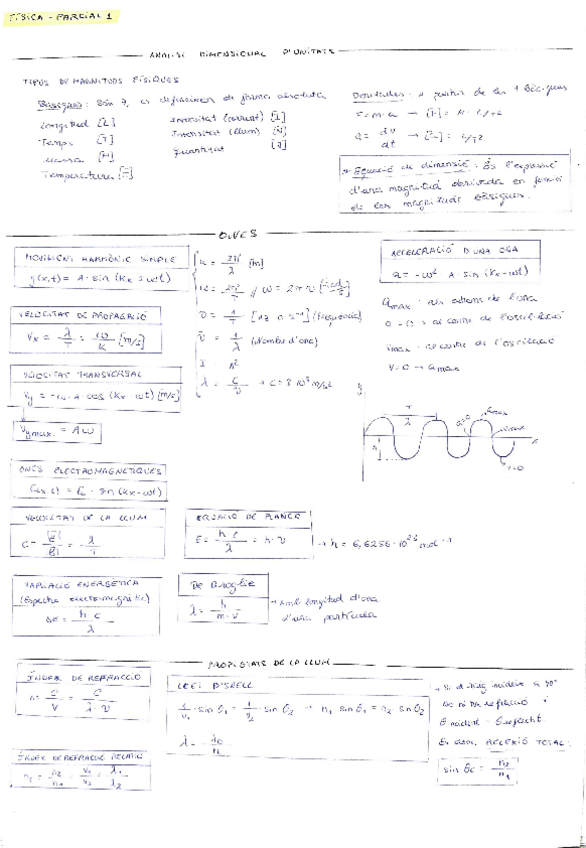 FÍSICA - PARCIAL 1
ANÀLISI DIMENSIONAL D'UNITATS
TIPUS DE MAGNITUDS FÍSIQUES
Bàsiques: Són 7, es defineixen de forma absoluta
Longitud [L]
Temps [T]
Massa [M]
Temperatura
Intensitat (corrent) [I]
Intensitat (llum) [N]
Quantitat
Derivades: A partir de les 7 bàsiques
F = m·a →
a = dv/dt →
* Equació de dimensió: És l'expressió
d'una magnitud derivada en funció
de les magnituds bàsiques.
ONES
MOVIMENT HARMÒNIC SIMPLE
y(x,t) = A · sin (Kx ± wt)
VELOCITAT DE PROPAGACIÓ
Vx = λ/T = w/K [m/s]
VELOCITAT TRANSVERSAL
Vy = -w · A cos (Kx - wt) [m/s]
Vy max. = A w
K = 2π/λ
w = 2π/T // w = 2πν [rad/s]
ν = 1/T [Hz o s⁻¹] (Freqüència)
ν̄ = 1/λ (Nombre d'ona)
λ = c/ν → c = 3·10⁸ m/s
ACCELERACIÓ D'UNA ONA
a = -w² A sin (Kx - wt)
a max: als extrems de l'ona
a = 0 → al centre de l'oscil·lació
V max: al centre de l'oscil·lació
V = 0 → a max
T/2
a=0
a max
V max
V=0
x
ONES ELECTROMAGNÈTIQUES
E(x,t) = E₀ · sin (Kx - wt)
VELOCITAT DE LA LLUM
C = |E|/|B| = λ/T
EQUACIÓ DE PLANCK
E = h c/λ = h·ν
→ h = 6,6256·10
VARIACIÓ ENERGÈTICA
(Espectre electromagnètic)
ΔE = h c/λ
De Broglie
λ = h/m·v
→ Amb longitud d'ona
d'una partícula
PROPIETATS DE LA LLUM
ÍNDEX DE REFRACCIÓ
n = C/V = C/λ·ν
ÍNDEX DE REFRACCIÓ RELATIU
= n2/n1 = V1/V2 = λ1/λ2
LLEI D'SNELL
1/V1 · sin θ1 = 1/V2 · sin θ2 → n1 sin θ1 = n2 · sin θ2
λ = λ0/n
→ Si el raig incideix a 90°
no hi ha refracció
θ incident = θ reflectit
REFLEXIÓ TOTAL:
sin θc = n2/n1